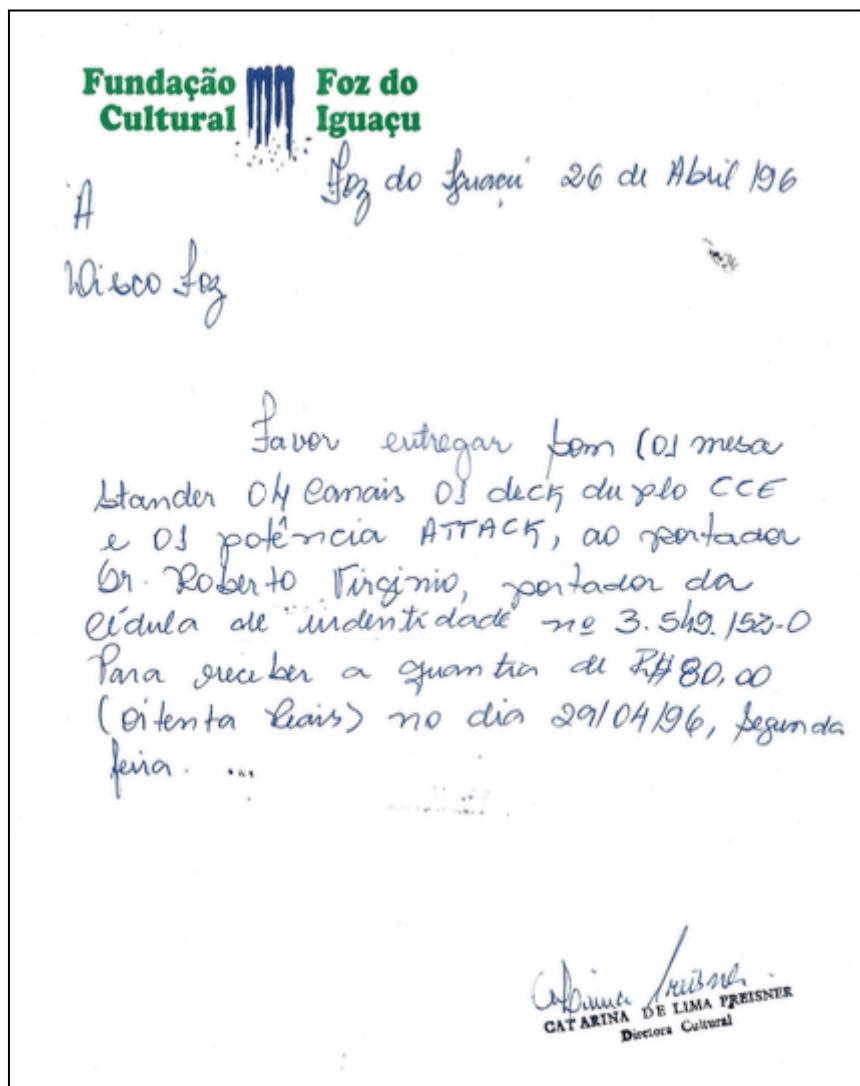 Fundação Cultural Foz do Iguaçu
Foz do Iguaçu 26 de Abril /96
À
Disco Foz
Favor entregar som (01 mesa
stander 04 Canais 01 deck duplo CCE
e 01 potência ATTACK, ao portador
Sr. Roberto Virginio, portador da
Cédula de indentidade nº 3.549.152-0
Para receber a quantia de R$ 80,00
(oitenta Reais) no dia 29/04/96, segunda
feira. ...
CATARINA DE LIMA PREISNER
Diretora Cultural